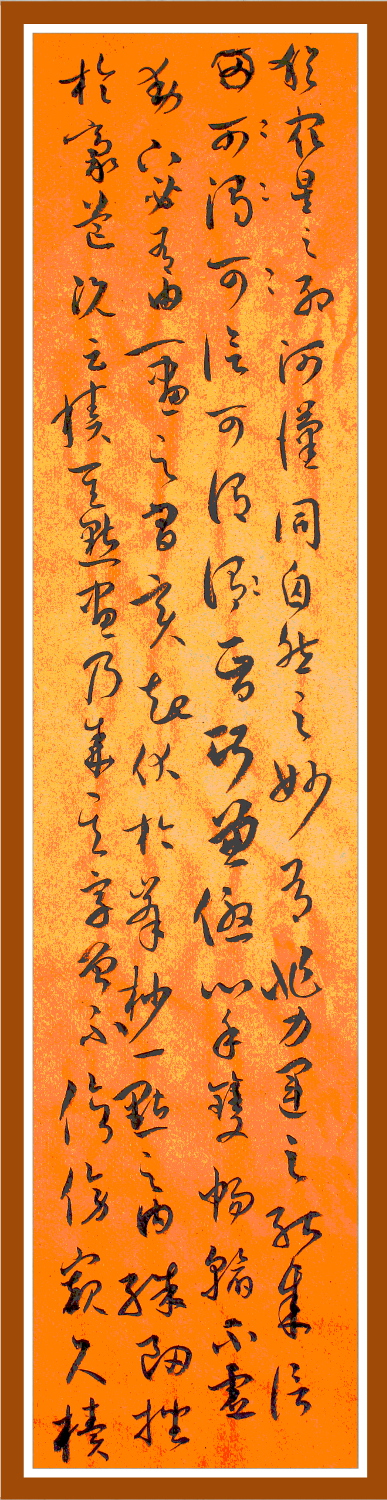 猶眾星之列河漢同自然之妙有非力運之能成信
可謂可信可謂智巧兼優心手雙暢翰不虛
動下必有由一畫之間變起伏於峯杪一點之內殊衄挫
於毫芒況云積其點畫乃成其字曾不傍窺尺牘